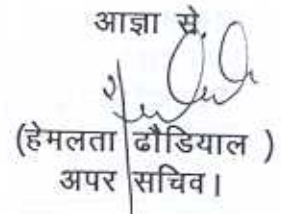 आज्ञा से,
(हेमलता ढौडियाल )
अपर सचिव।